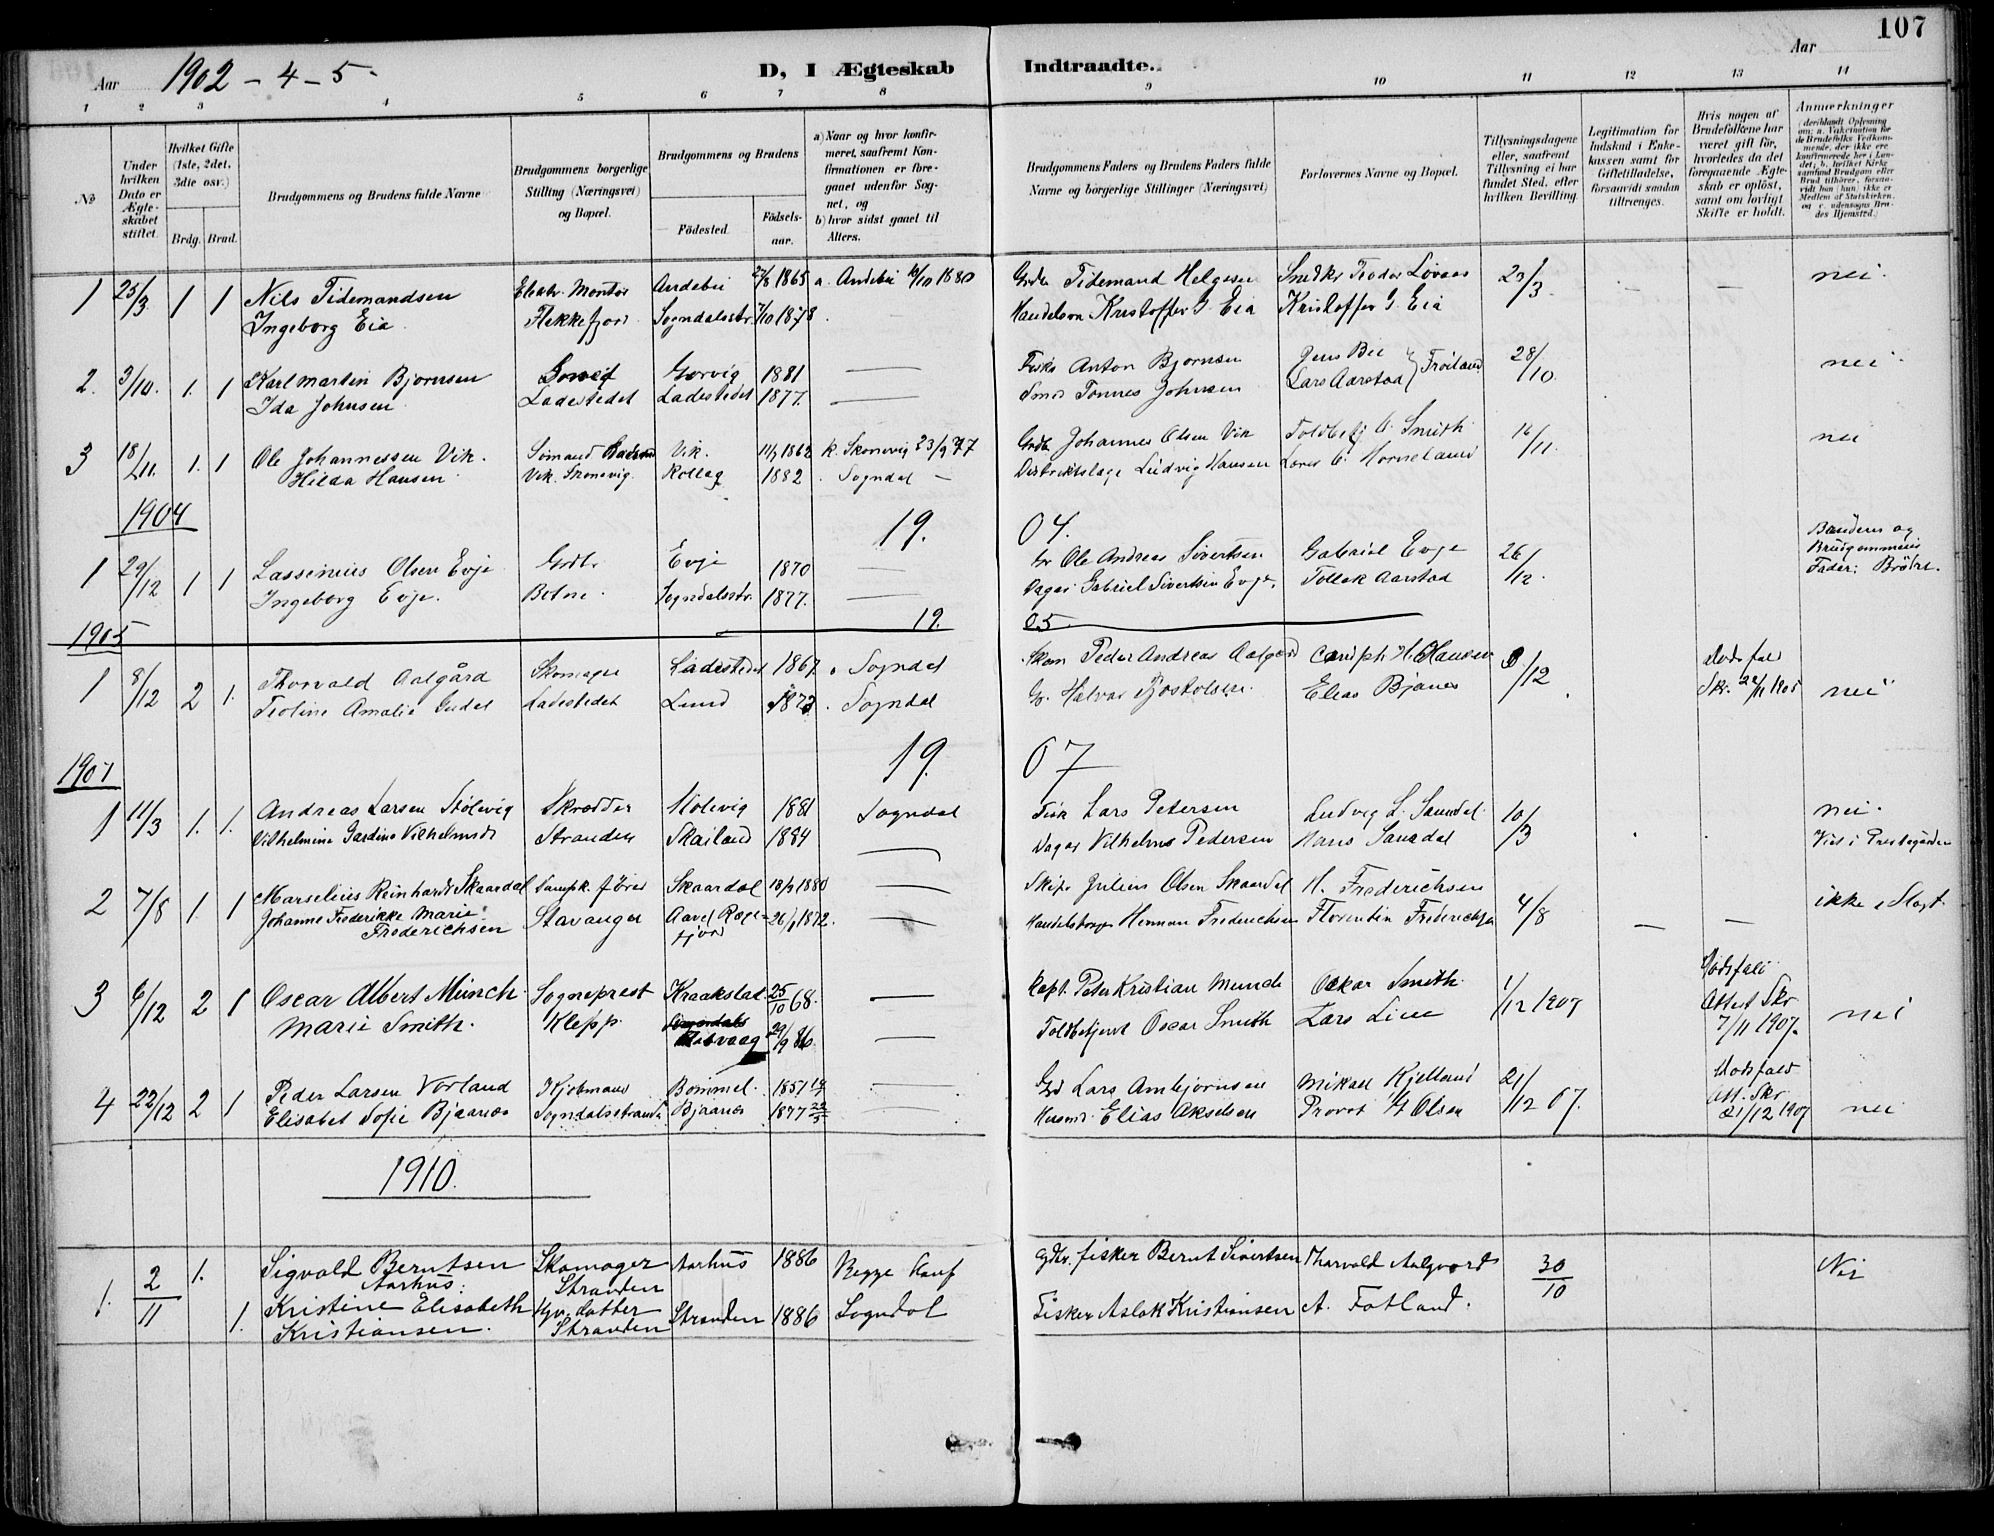 107
Aar 1902 - 4 - 5 -
D, I Ægteskab Indtraadte.
Aar
1 2 3 4 5 6 7 8 9 10 11 12 13 14
No
Under hvilken Dato er Ægteskabet stiftet.
Hvilket Gifte (1ste, 2det, 3die osv.)
Brdg. Brud.
Brudgommens og Brudens fulde Navne
Brudgommens borgerlige Stilling (Næringsvei) og Bopæl.
Brudgommens og Brudens
Födested.
Födselsaar.
a) Naar og hvor konfirmeret, saafremt Konfirmationen er foregaaet udenfor Sognet, og
b) hvor sidst gaaet til Alters.
Brudgommens Faders og Brudens Faders fulde Navne og borgerlige Stillinger (Næringsvei)
Forlovernes Navne og Bopæl.
Tillysningsdagene eller, saafremt Tillysning ei har fundet Sted, efter hvilken Bevilling.
Legitimation for Indskud i Enkekassen samt for Giftetilladelse, forsaavidt saadan tiltrænges.
Hvis nogen af Brudefolkene har været gift för, hvorledes da det foregaaende Ægteskab er oplöst, samt om lovligt Skifte er holdt.
Anmærkninger
1 25/3 1 1 Nils Tidemandsen Elektr. Montör Andebu 27/8 1865 a. Andebu 10/10 1880 Grdbr Tidemand Helgesen Smedkr Peder Lövaas 23/3 - - nei
Ingeborg Eia Flekkefjord Sogndalsstr. 7/10 1878 Handelsm Kristoffer G. Eia Kristoffer G. Eia
2. 3/10. 1. 1 Karl Martin Bjornsen Gorvig 1881 Fisk Anton Bjornsen Jens Bie 28/10 nei
Ida Johnsen Ladestedet Ladestedet 1877. Smed Tönnes Johnsen Lars Aarstad Fröiland
3 18/11. 1. 1 Ole Johannessen Vik. Sömand Vik. 11/9 1862 k. Skonevig 23/9 77 Grdb Johannes Olsen Vik Toldbetj O. Smith 16/11. nei
Hilda Hansen Vik. Skonevig. Rollag 1882 Sogndal - Distriktslæge Ludvig Hansen Lars O. Horneland
1904 19. 04.
1 29/12 1 1 Lassenius Olsen Evje Grdbr Evje 1870 Gr Ole Andreas Sivertsen Gabriel Evje 26/12. Brudens og Brudgommens Fader: Brödre.
Ingeborg Evje. Botne. Sogndalsstr. 1877. Dagar Gabriel Sivertsen Evje. Tollak Aarstad
1905 19. 05.
1 8/12 2 1. Thorvald Aalgård Skomager Ladestedet 1867. Sogndal Skom Peder Andreas Aalgård H. Hansen 9/12 Dødsfald
Teoline Amalie Gudal Ladestedet Lund 1873. Sogndal Gr. Halvar Elias Bjanes Skr. 22/11 1905 nei
1907 19. 07
1 11/3 1. 1. Andreas Larsen Stölevig Skrædder Stolevig 1881 Sogndal Fisk Lars Petersen Ludvig L. Sandal 10/3 nei.
Vilhelmine Gardine Vilhelmsdr Stranden Skailand 1884 Dagar Vilhelms Pedersen Hans Sandal Viet i Prestegården
2 7/8 1. 1 Marselius Reinhardt Skaardal Dampsk. förer Skaardal 18/9 1880 Skipr Julius Olsen Skaardal H. Frederichsen 4/8 - - ikke i Slægt
Johanne Frederikke Marie Frederichsen Stavanger Aavel Rægefjord 26/1 1872. Handelsborger Herman Frederichsen Florentin Frederichsen
3 6/12 2 1 Oscar Albert Münch Sogneprest Kraakstad 25/10 68. Kapt. Peter Kristian Munch Oskar Smith 1/12 1907 Dødsfald Attest Skr 7/11 1907. nei
Marie Smith. Klepp. 29/9 86. Toldbetjent Oscar Smith Lars Lien
4 22/12 2 1 Peder Larsen Vorland Kjöbmand Bömmel. 1851 Grd Lars Ambjörnsen Mikael Kjelland 21/12 07. Dødsfald Att. Skr 21/12 1907 nei
Elisabet Sofie Bjaanes Sogndalsstrand Bjaanes 1877 Husmd. Elias Akselsen Provot H Olsen
1910.
1. 2/11 1. Sigvald Berntsen Aarhus. Skomager Stranden Aarhus 1886 Begge konf Gdbr. fisker Bernt Sivertsen Tharvald Aalgaard 30/10 Nei
1. Kristine Elisabeth Kristiansen. datter Stranden Stranden 1886 Sogndal Fisker Aslak Kristiansen A. Fotland.